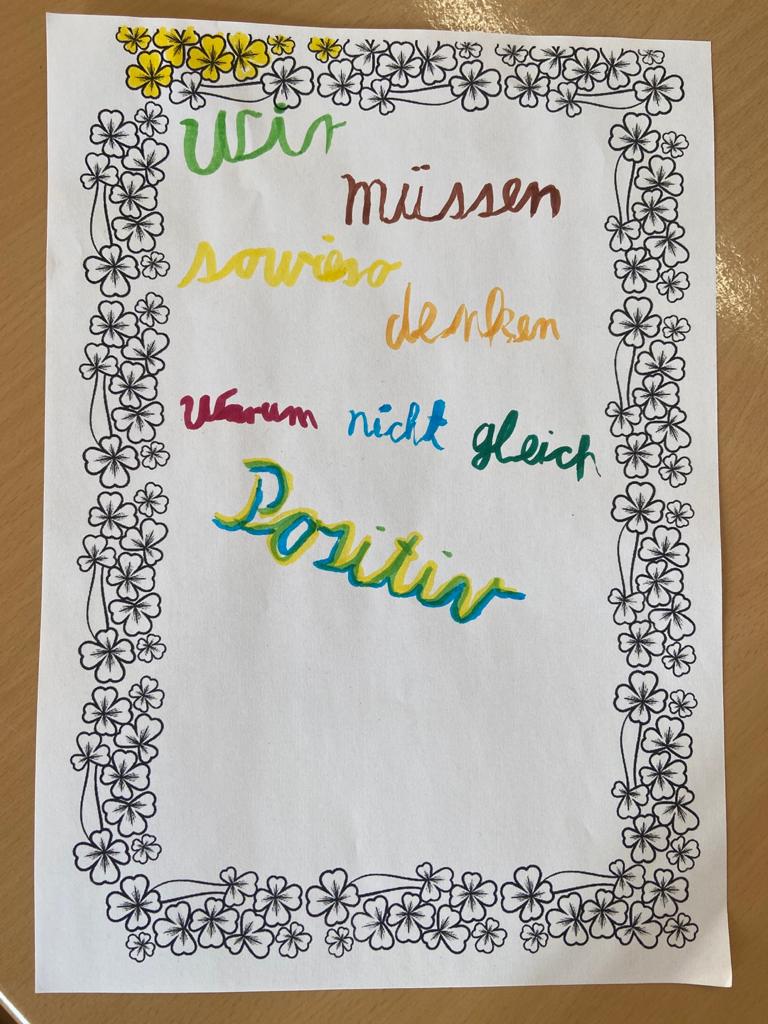 Wir
müssen
sowieso
denken
Warum nicht gleich
Positiv